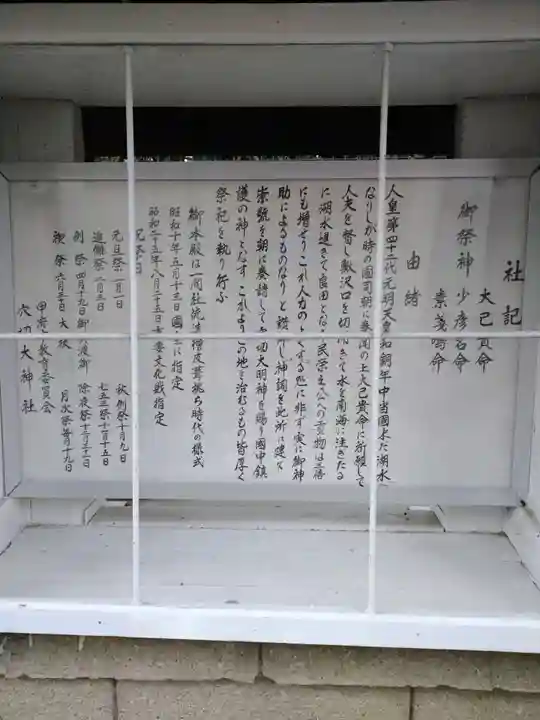 社記
大己貴命
御祭神 少彦名命
素戔嗚命
由緒
人皇第四十三代元明天皇和銅年中当国水た湖水
なりしが時の国司朝に奏聞の上大己貴命に祈願して
人夫を督し鰍沢口を切り開きて水を南海に注ぎたる
に湖水退きて良田となり民栄え公への貢物は日
にも増せりこれ人力のよくする処に非ず実に御神
助によるものなりと 神詞を此所に建て
崇號を朝に奏請して 切大明神を賜り國中鎮
護の神となすこれよりこの地を治むるもの皆厚く
祭祀を執り行ふ
御本殿は一間社流造檜皮葺桃山時代の様式
昭和十年五月十三日國宝に指定
昭和二十五年八月二十五日重要文化財指定
祝祭日
元旦祭一月一日 秋例祭十月九日
追儺祭二月三日 七五三祭十一月十五日
例祭四月十九日御 渡御 除夜祭十二月三十一日
禊祭六月三十日大祓 月次祭毎月十九日
甲府市教育委員会
穴切大神社